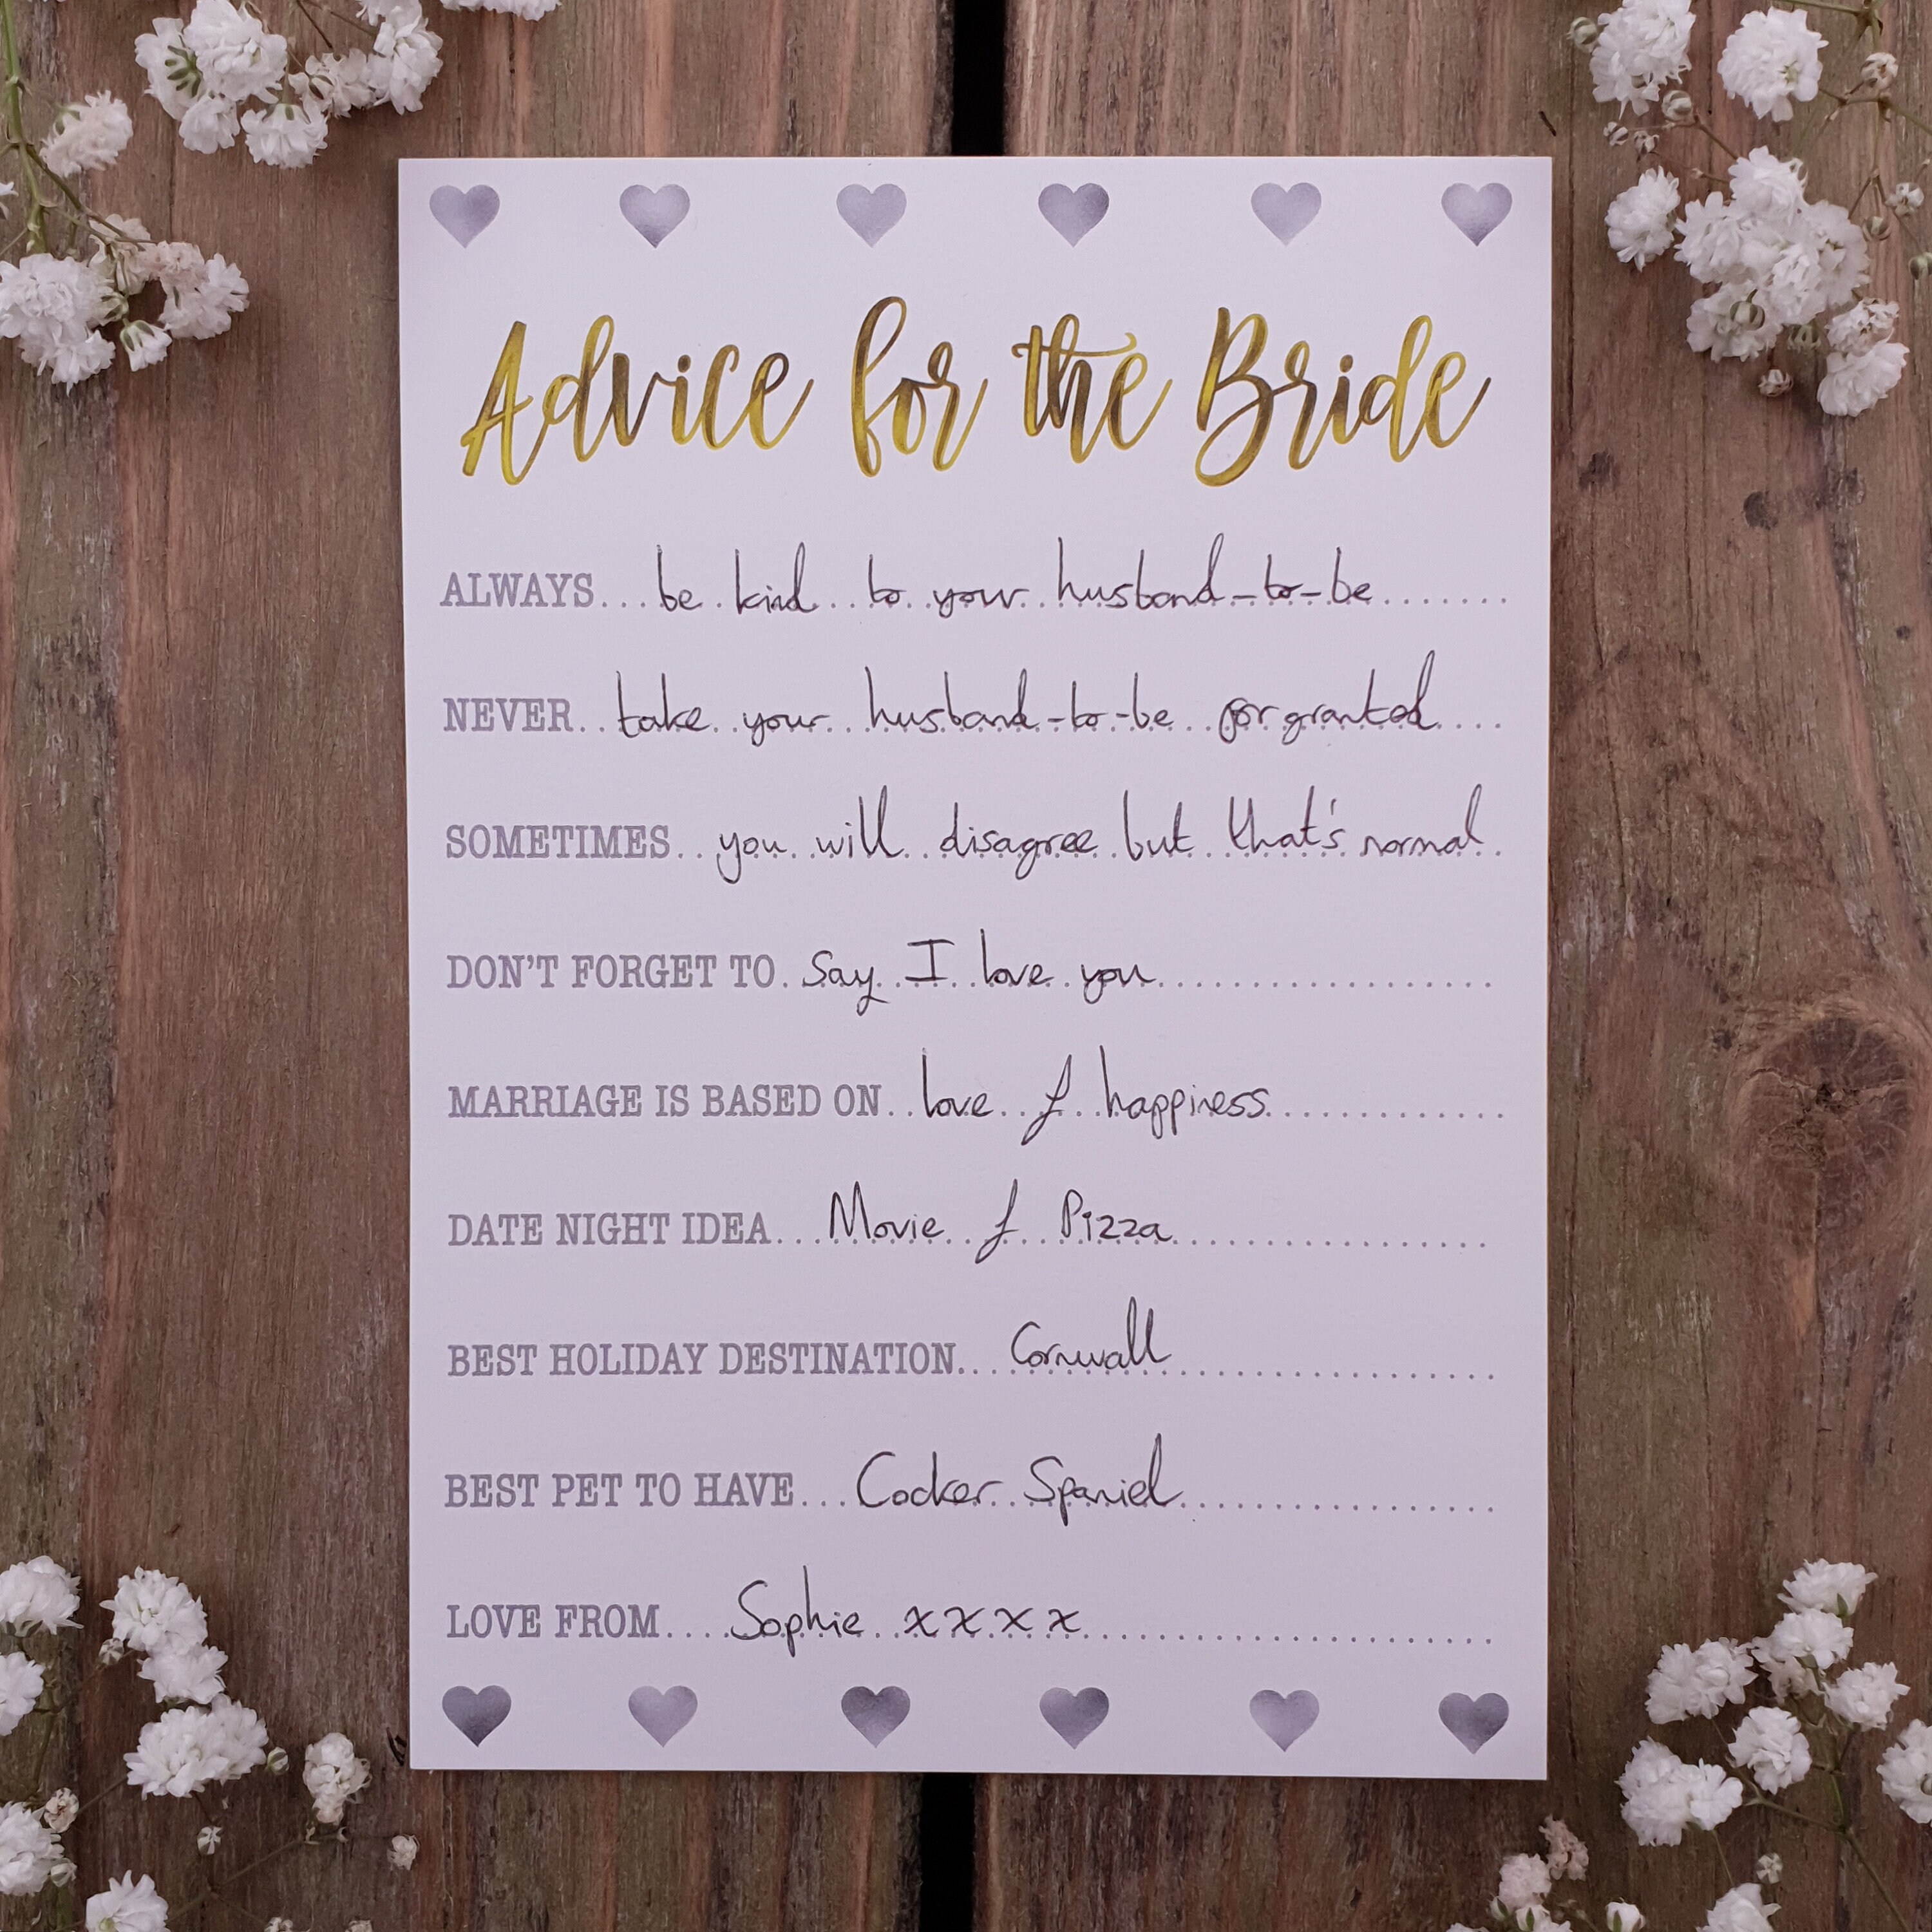 Advice for the Bride
ALWAYS... be kind to your husband-to-be
NEVER.. take your husband-to-be for granted
SOMETIMES.. you will disagree but that's normal
DON'T FORGET TO. Say I love you
MARRIAGE IS BASED ON.. love & happiness
DATE NIGHT IDEA... Movie & Pizza
BEST HOLIDAY DESTINATION... Cornwall
BEST PET TO HAVE... Cocker Spaniel
LOVE FROM.... Sophie xxxx